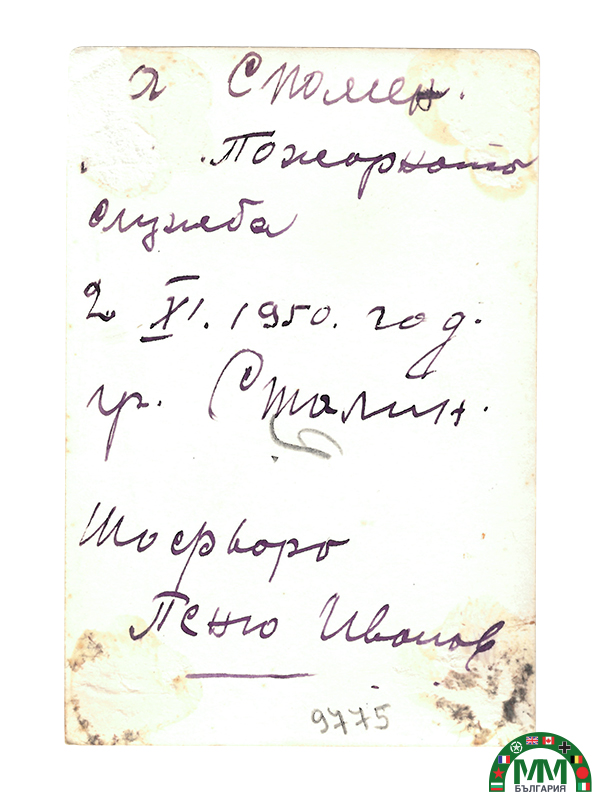 Спомен.
Пожарната
служба
2 XI. 1950. год.
гр. Сталин.
Шофьора
Пеню Иванов
9775
ММ
БЪЛГАРИЯ